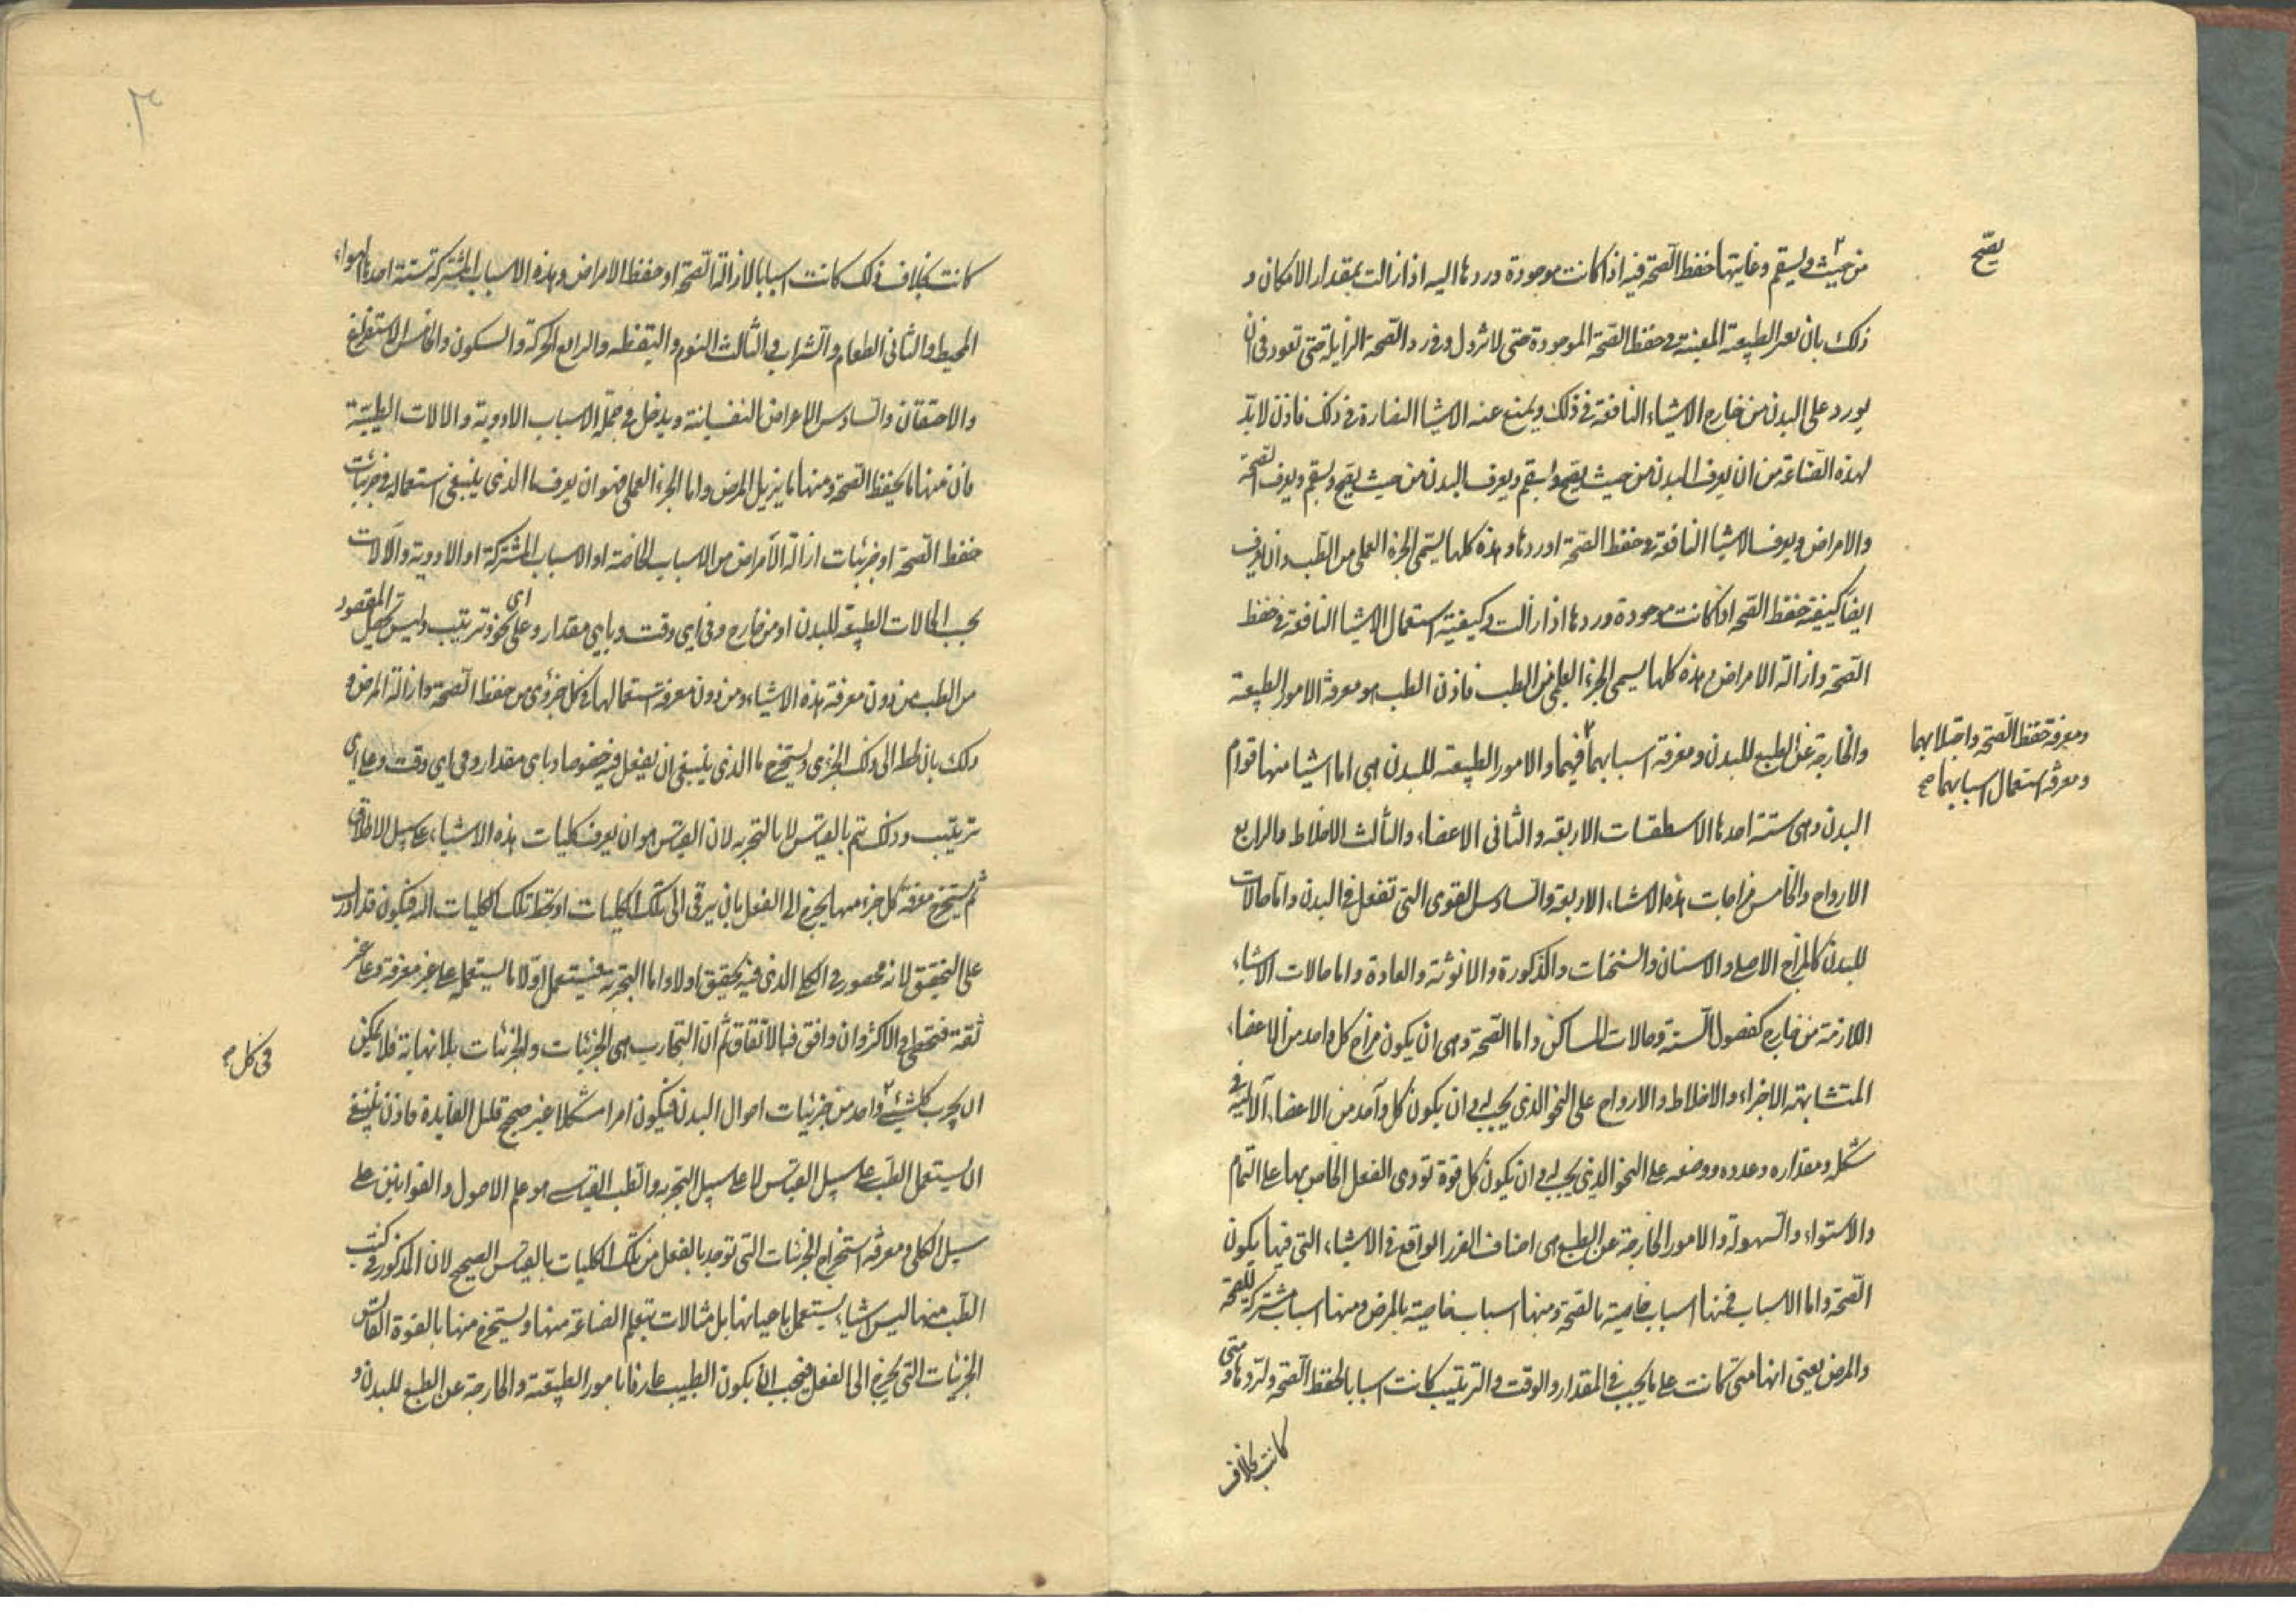 يصح
من حيث ويسقم وغايتها حفظ الصحة فيه اذا كانت موجودة وردها اليه اذا زالت بمقدار الامكان و
ذلك بان الطبيعة المعينة في حفظ الصحة الموجودة حتى لا تزول وفي رد الصحة الزايلة حتى تعود في ان
يورد على البدن من خارج الاشياء النافعة في ذلك ويمنع عنه الاشيا الضارة في ذلك فاذن لا بد
لهذه الصناعة من ان يعرف البدن من حيث يصح ويسقم ويعرف البدن من حيث يصح ويسقم ويعرف الصحة
والامراض ويعرف الاشيا النافعة في حفظ الصحة او ردها وهذه كلها يسمى الجزء العملى من الطب وان يعرف
ايضا كيفية حفظ الصحة اذا كانت موجودة وردها اذا زالت وكيفية استعمال الاشيا النافعة في حفظ
الصحة وازالة الامراض وهذه كلها يسمى الجزء العلمى من الطب فاذن الطب هو معرفة الامور الطبيعة
والخارجة عن الطبع للبدن ومعرفة اسبابهما فيهما والامور الطبيعة للبدن هى اما اشيا منها قوام
ومعرفة حفظ الصحة واجتلابهما
ومعرفة استعمال اسبابهما صح
البدن وهى ستة احدها الاسطقسات الاربعة والثانى الاعضاء والثالث الاخلاط والرابع
الارواح والخامس مزاجات هذه الاشياء الاربعة والسادس القوى التى تفعل في البدن واما حالات
للبدن كالمزاج الاصلى والاسنان والسخنات والذكورة والانوثة والعادة واما حالات الاشياء
اللازمة من خارج كفصول السنة وحالات المساكن واما الصحة وهى ان يكون مزاج كل واحد من الاعضاء
المتشابهة الاجزاء والاخلاط والارواح على النحو الذى يجب له وان يكون كل واحد من الاعضاء الالية في
شكله ومقداره وعدده ووضعه على النحو الذى يجب له وان يكون كل قوة تودى الفعل الخاص بها على التمام
والاستواء والسهولة والامور الخارجة عن الطبع هى اصناف الضرر الواقع في الاشياء التى فيها يكون
الصحة واما الاسباب فمنها اسباب خاصية بالصحة ومنها اسباب خاصية بالمرض ومنها اسباب مشتركة للصحة
والمرض يعنى انها متى كانت على ما يجب في المقدار والوقت والترتيب كانت اسبابا لحفظ الصحة ولردها ومتى
كانت بخلاف
كانت بخلاف ذلك كانت اسبابا لازالة الصحة او حفظ الامراض وهذه الاسباب المشتركة ستة احدها الهواء
المحيط والثانى الطعام والشراب والثالث النوم واليقظة والرابع الحركة والسكون والخامس الاستفراغ
والاحتقان والسادس الاعراض النفسانية ويدخل في جملة الاسباب الادوية والالات الطبية
فان منها ما يحفظ الصحة ومنها ما يزيل المرض واما الجزء العملى فهو ان يعرف ما الذى ينبغى استعماله في جزئيات
حفظ الصحة او جزئيات ازالة الامراض من الاسباب الخاصة او الاسباب المشتركة او الادوية والالات
بحسب الحالات الطبيعة للبدن او من خارج وفى اى وقت وباى مقدار وعلى اى نحو وترتيب وليس يحصل المقصود
من الطب من دون معرفة هذه الاشياء ومن دون معرفة استعمالها في كل جزوى من حفظ الصحة وازالة المرض و
ذلك بان الى ذلك الجزى ويستخرج ما الذى ينبغى ان يفعل فيه خصوصا وباى مقدار وفى اى وقت وعلى اى
ترتيب وذلك تم بالقياس لا بالتجربه لان القياس هو ان يعرف كليات هذه الاشياء على سبيل الاطلاق
ثم يستخرج معرفة كل جزء منها يخرج الى الفعل بان يرقى الى تلك الكليات او تلك الكليات اليه فيكون قد ادرك
على التحقيق لانه محصور في الكلى الذى فيه تحقيق اولا واما التجربة فيستعمل اولا ما يستعمله على غير معرفة وعلى غير
ثقة فتخطى في الاكثر وان وافق فبالاتفاق ثم ان التجارب هى الجزئيات والجزئيات بلا نهاية فلا يمكن
ان يجرب كل شئ واحد من جزئيات احوال البدن فيكون امرا مشكلا غير صحيح قليل الفايدة فاذن ينبغى
في كل صح
ان يستعمل الطب على سبيل القياس لا على سبيل التجربه والطب القياسى هو علم الاصول والقوانين على
سبيل الكلى ومعرفة استخراج الجزئيات التى توجد بالفعل من تلك الكليات بالقياس الصحيح لان المذكور في كتب
الطب منها ليس اشياء يستعمل باعيانها بل مثالات يتعلم الصناعة منها ويستخرج منها بالقوة القياس
الجزئيات التى يخرج الى الفعل فيجب ان يكون الطبيب عارفا بامور الطبيعة والخارجة عن الطبع للبدن و